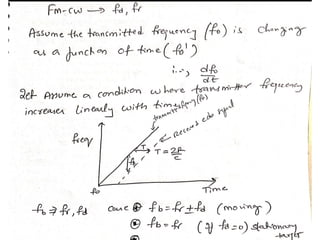 FM-CW → fd, fr
Assume the transmitted frequency (fo) is changing
as a function of time (fo')
i.e., dfo/dt
Let Assume a condition where transmitter frequency
increases linearly with time
transmitted signal (fo)
Received echo signal
freq
T
T = 2R/c
fb
fo
Time
fb ⇒ fr, fd case ① fb = fr ± fd (moving)
② fb = fr (if fd = 0) stationary
target